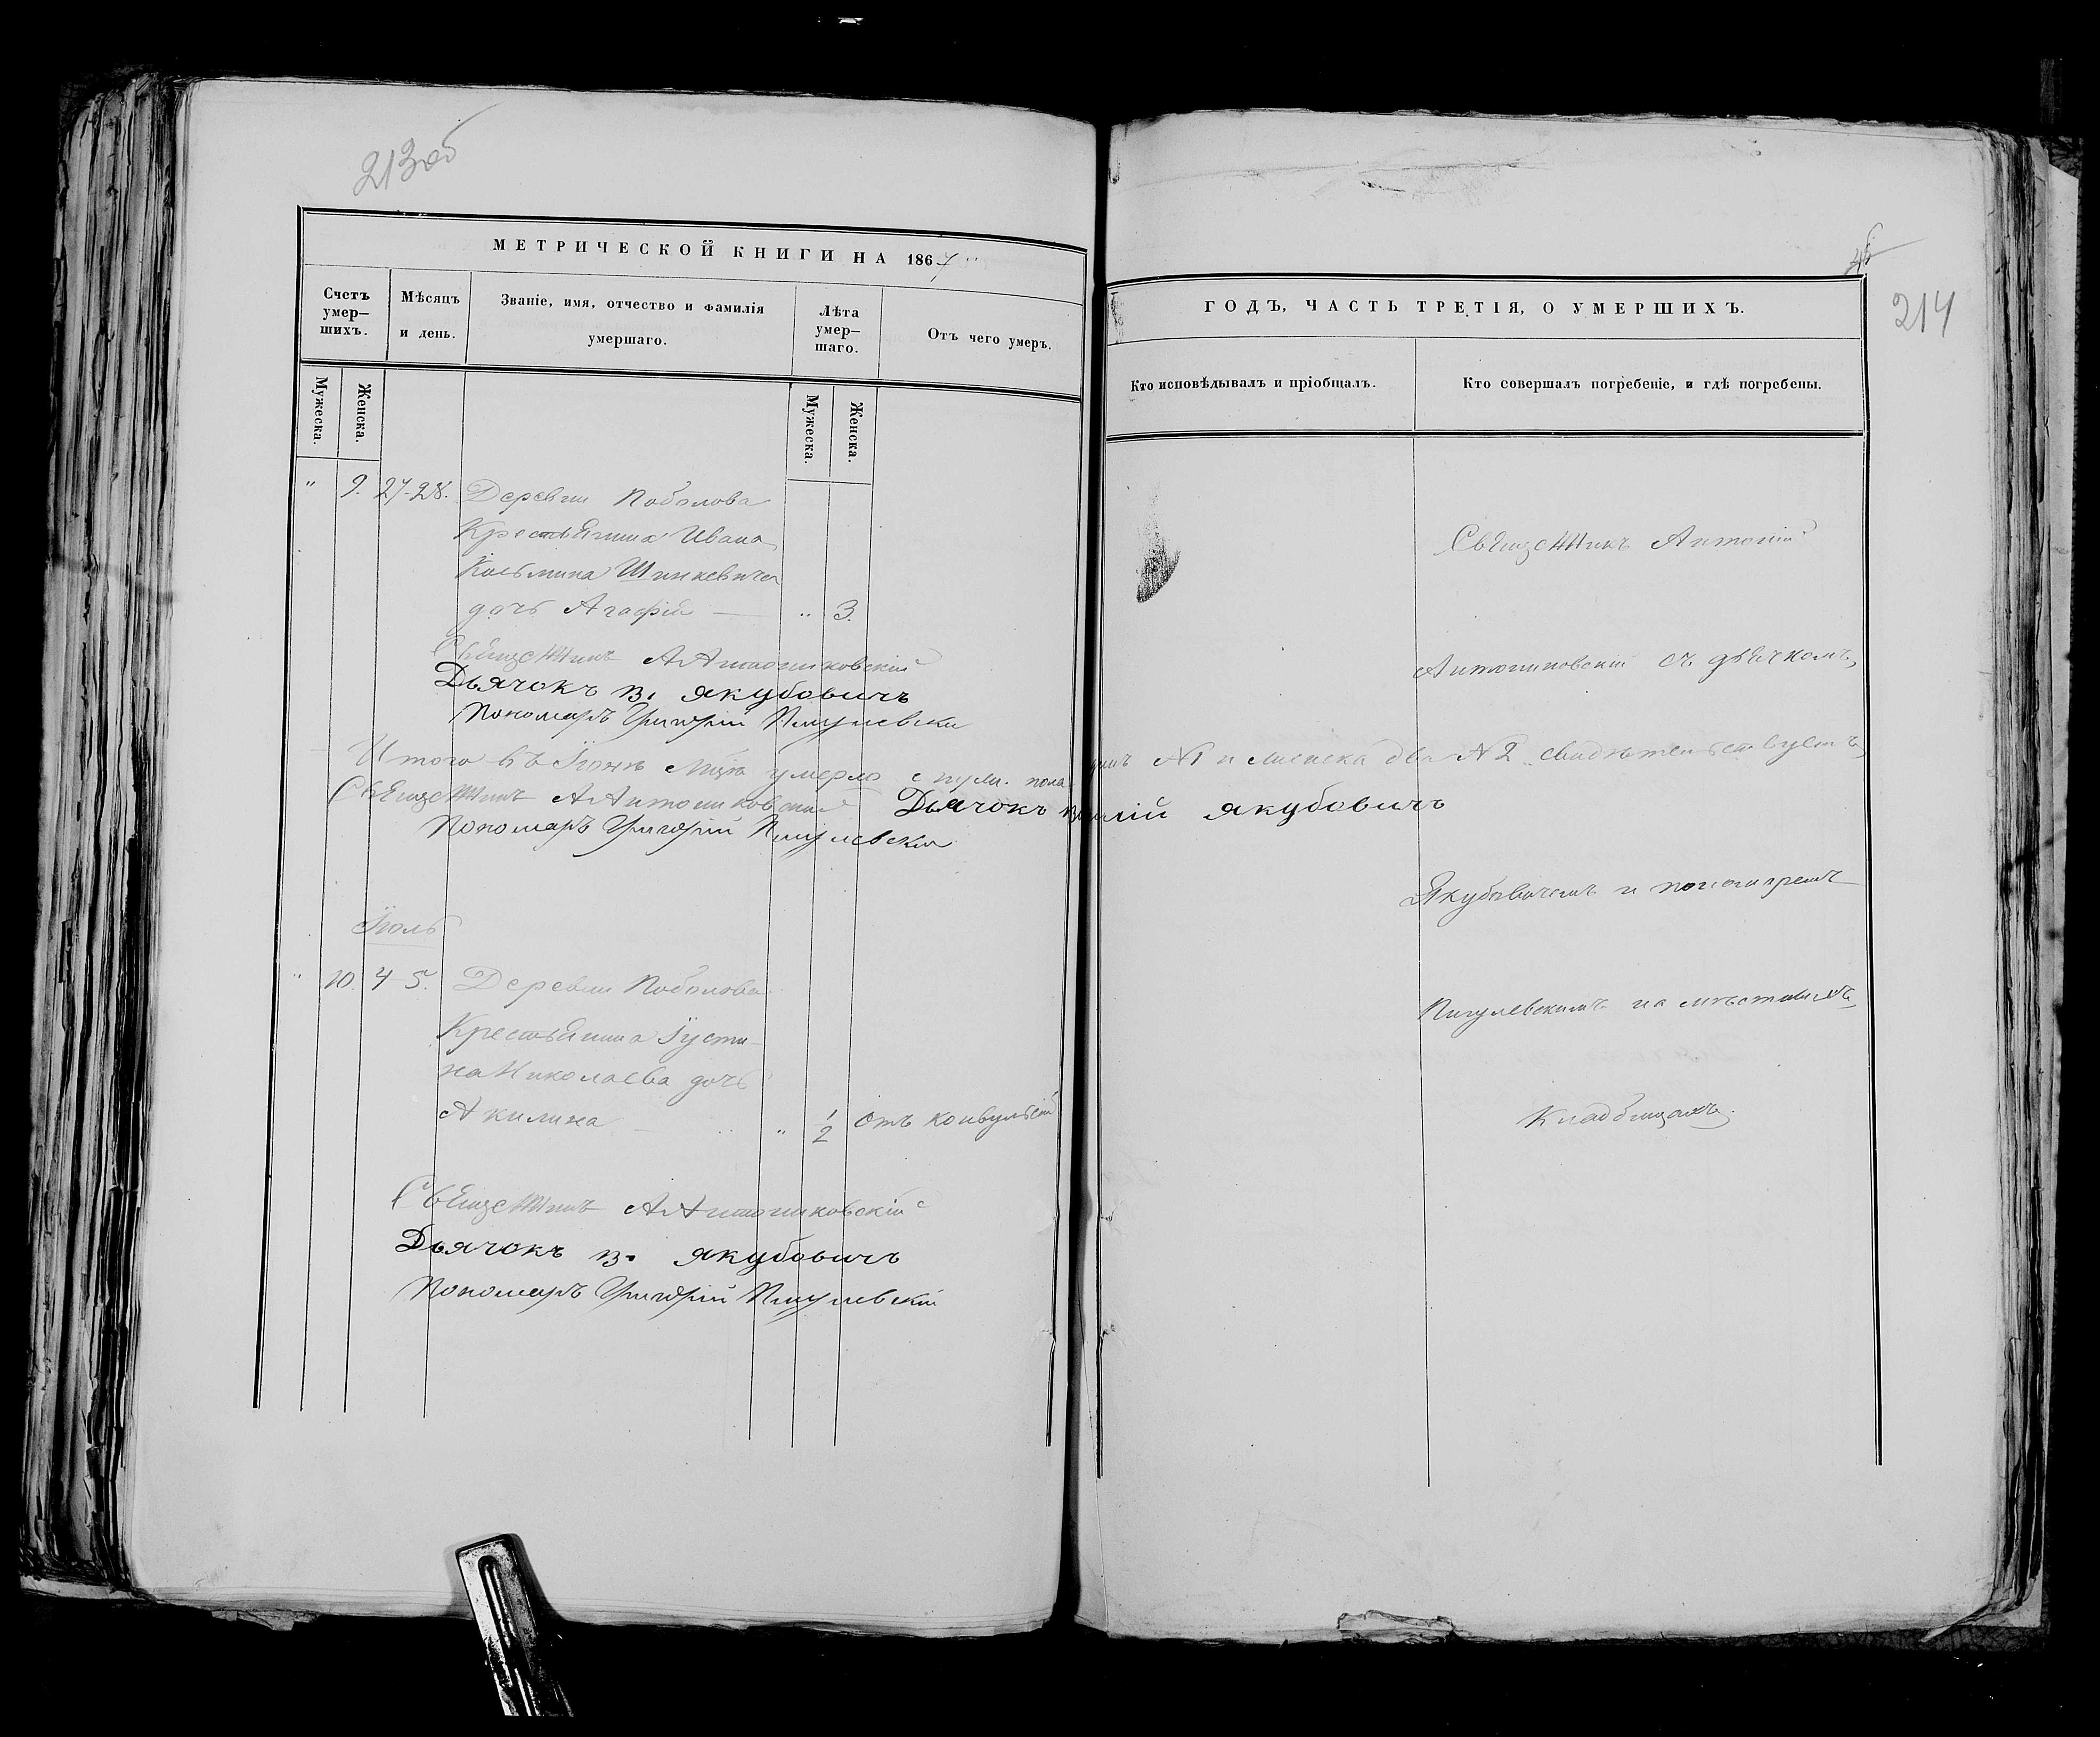 213 об
МЕТРИЧЕСКОЙ КНИГИ НА 1867
Счетъ умер—шихъ.
Мѣсяцъ и день.
Званіе, имя, отчество и фамилія умершаго.
Лѣта умер—шаго.
Отъ чего умеръ.
Мужеска.
Женска.
Мужеска.
Женска.
" 9. 27-28. Деревни Поболова
Крестьянина Ивана
Козьмина Шинкевича
дочь Агафія — " 3.
Священникъ А Антониковскій
Дьячокъ В. Якубовичъ
Пономарь Григорій Пигулевскій
Итого въ Іюнѣ умерло мужеска пола одинъ №1 и женска два №2 свидѣтельствуемъ
Священникъ А Антониковскій Дьячокъ Якубовичъ
Пономарь Григорій Пигулевскій
Іюль
" 10. 4-5. Деревни Поболова
Крестьянина Іусти-
на Николаева дочь
Акилина — " 1/2 отъ конвульсій
Священникъ А Антониковскій
Дьячокъ В. Якубовичъ
Пономарь Григорій Пигулевскій
214
ГОДЪ, ЧАСТЬ ТРЕТІЯ, О УМЕРШИХЪ.
Кто исповѣдывалъ и пріобщалъ.
Кто совершалъ погребеніе, и гдѣ погребены.
Священникъ Антоній
Антониковскій съ дьячкомъ
Якубовичемъ и пономаремъ
Пигулевскимъ на мѣстныхъ
Кладбищахъ.